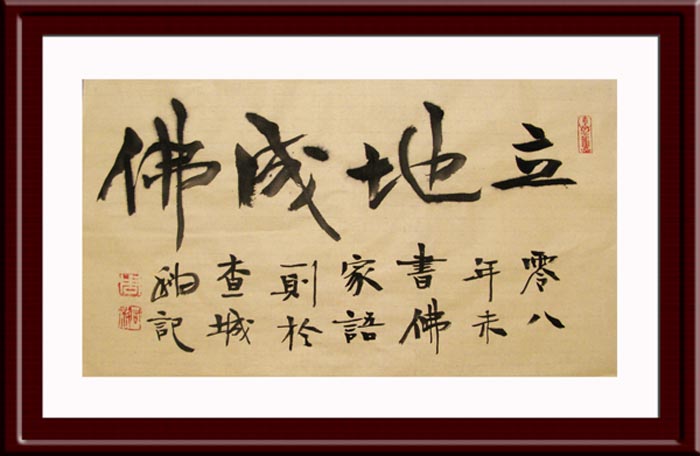 立地成佛
零八
年末
書佛
家語
則於
查城
記